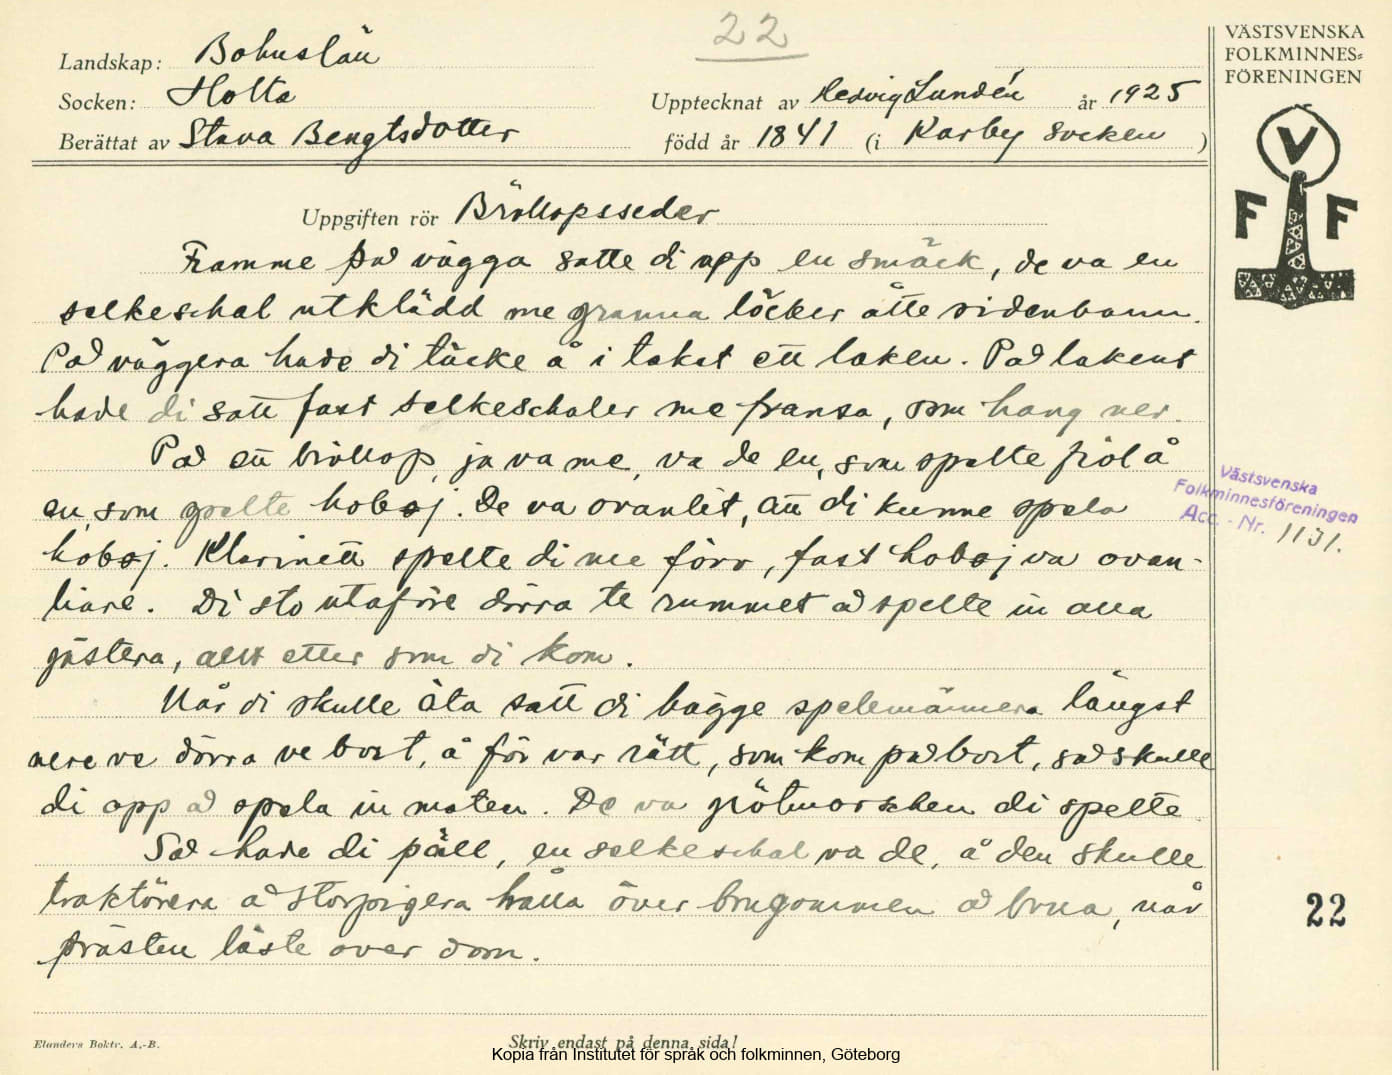 22
Landskap: Bohuslän
Socken: Holta
Upptecknat av Hedvig Lundén år 1925
Berättat av Stava Bengtsdotter född år 1841 (i Karby socken )
VÄSTSVENSKA
FOLKMINNES-
FÖRENINGEN
V
F F
Uppgiften rör Bröllopsseder
Framme på vägga satte di opp en smäck, de va en
selkeschal utklädd me granna löcker åtte sidenbann.
På väggera hade di täcke å i taket ett laken. På lakent
hade di satt fast selkeschaler me fransa, som hang ner.
På ett bröllop, ja va me, va de en, som spelte fiol å
en, som spelte hoboj. De va ovanlit, att di kunne spela
hoboj. Klarinett spelte di me förr, fast hoboj va ovan-
liare. Di sto utaföre dörra te rummet å spelte in alla
gästera, allt etter som di kom.
Når di skulle äta satt di bägge spelemännera längst
nere ve dörra ve bort, å för var rätt, som kom på bort, så skulle
di opp å spela in maten. De va grötmorschen di spelte.
Så hade di päll, en selkeschal va de, å den skulle
traktörera å storpigera hålla över brugommen å brua, når
prästen läste över dom.
Västsvenska
Folkminnesföreningen
Acc. - Nr. 1131.
22
Elanders Boktr. A.-B.
Skriv endast på denna sida!
Kopia från Institutet för språk och folkminnen, Göteborg